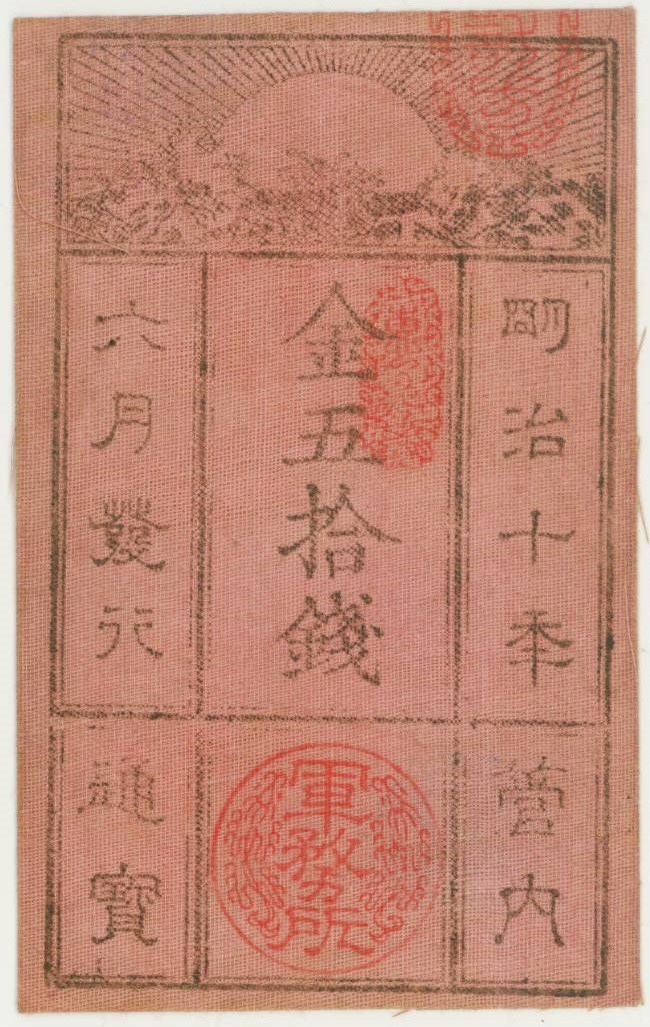 明治十年
金五拾錢
六月發行
管内
軍務所
通寳